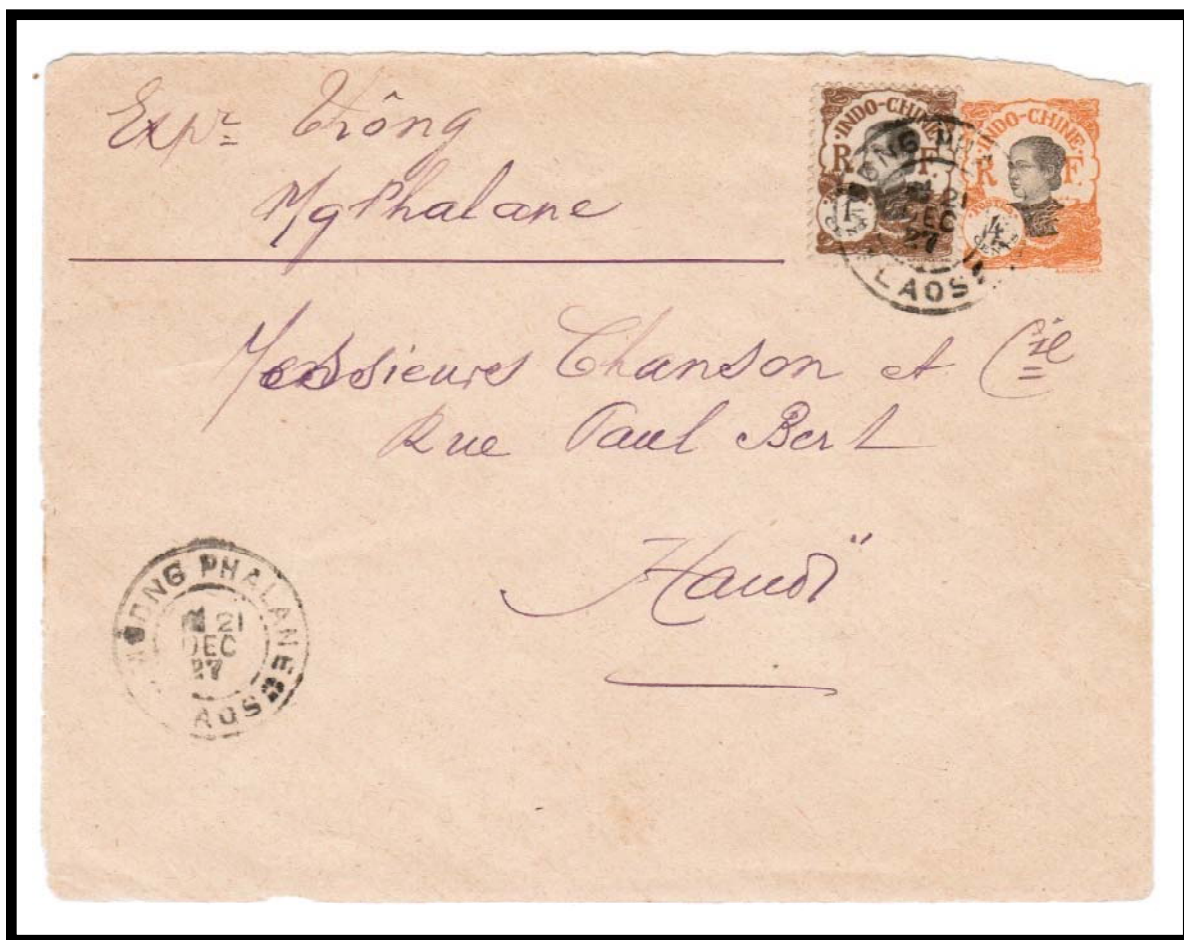 Expr Trông
Mg Phalane
INDO-CHINE
R F
1
INDO-CHINE
R F
4
CENTS
21
DEC
27
LAOS
Messieures Chanson et Cie
Rue Paul Bert
Hanoï
ONG PHALANE
21
DEC
27
AOS